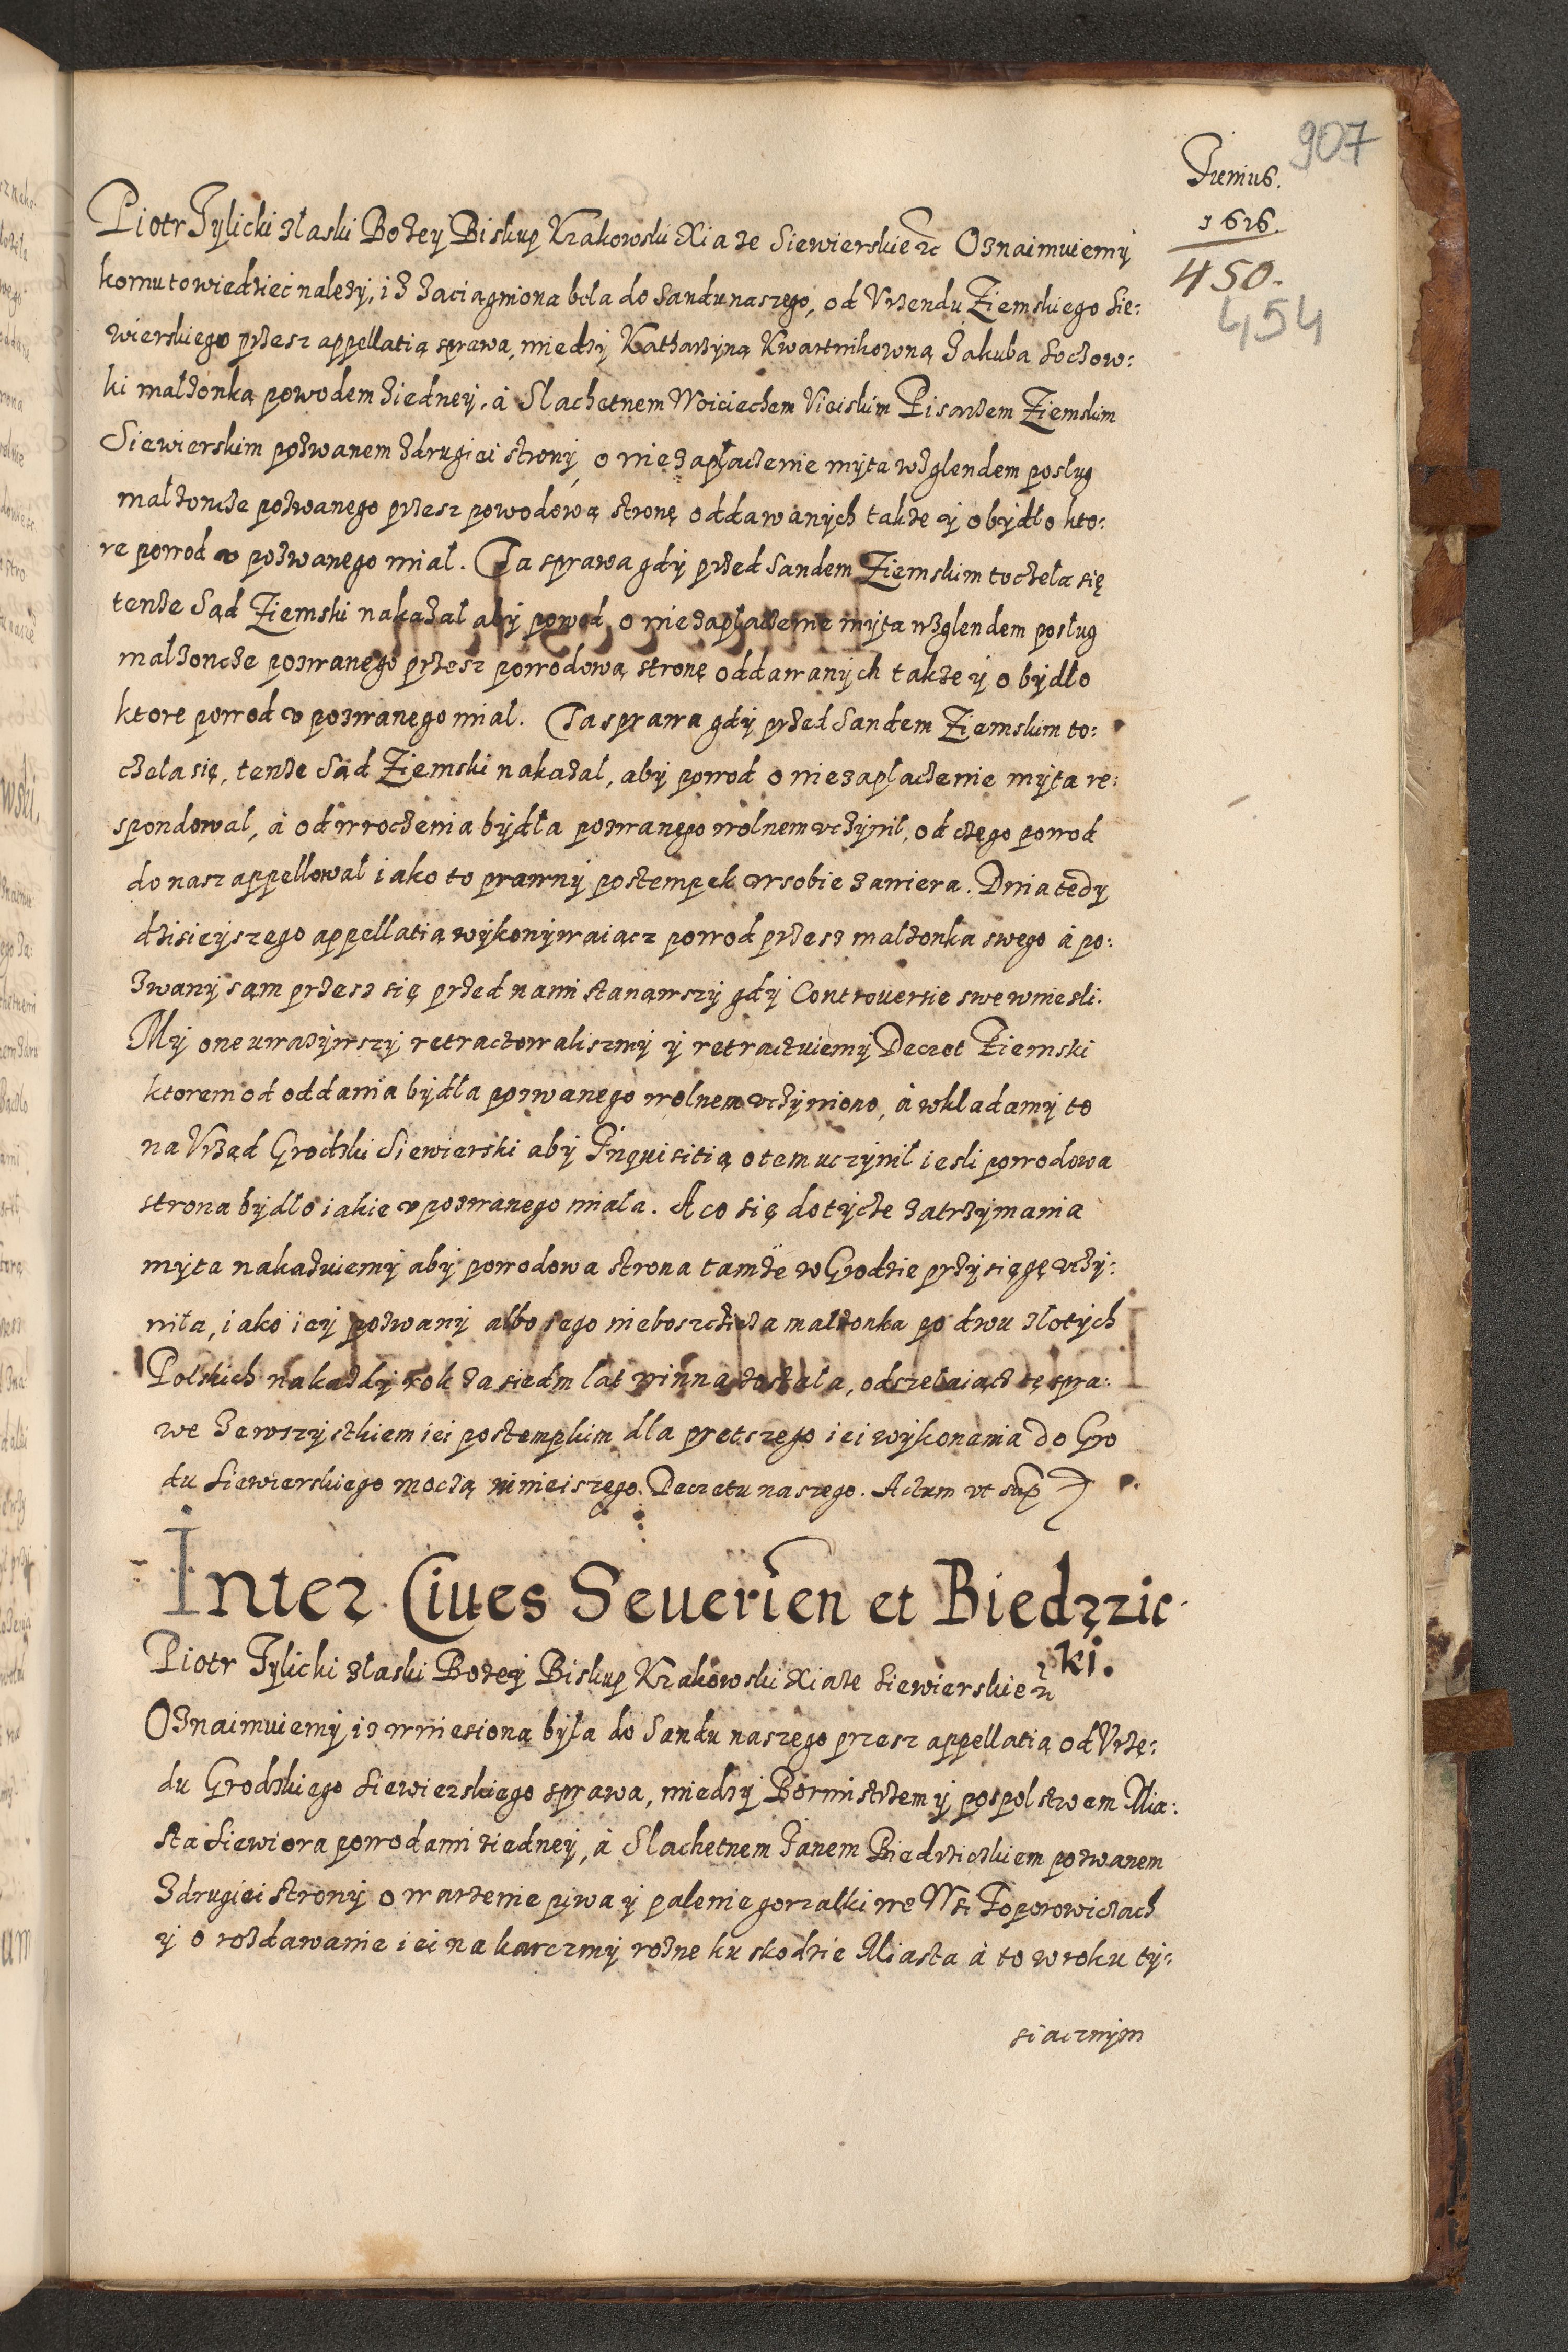 907
Junius.
1616.
450.
454
Piotr Tylicki z łaski Bożey Biskup Krakowski Xiąże Siewierskie etc Oznaimuiemy
komu to wiedzieć należy, iż zaciągniona beła do Sandu naszego, od Vrzendu Ziemskiego Sie:
wierskiego przesz appellatią sprawa, miedzy Katharzyną Kwartnikowną Jakuba Sochow:
ki małżonką powodem z iedney, á Slachetnem Woiciechem Vieiskim Pisarzem Ziemskim
Siewierskim pozwanem z drugiei strony, o niezapłaczenie myta wzglendem posług
małżoncze pozwanego przesz powodową stronę oddawanych także y o bydło kto:
re powod v pozwanego miał. Ta sprawa gdy przed Sandem Ziemskim toczeła się
tenże Sąd Ziemski nakazał aby powod o niezapłaczenie myta wzglendem posług
małżoncze pozwanego przesz powodową stronę oddawanych także y o bydło
ktore powod v pozwanego miał. Ta sprawa gdy przed Sandem Ziemskim to:
czeła się, tenże Sąd Ziemski nakazał, aby powod o niezapłaczenie myta re:
spondował, á od wroczenia bydła pozwanego wolnem vczynił, od czego powod
do nasz appellował iako to prawny postempek w sobie zawiera. Dnia tedy
dzisieyszego appellatią wykonywaiacz powod przesz małżonka swego á po:
zwany sąm przesz się przed nami stanąwszy gdy Controuersie swe wniesli.
My one uważywszy retractowaliszmy y retractuiemy Decret Ziemski
ktorem od oddania bydła pozwanego wolnem vczyniono, á wkładamy to
na Vrząd Grodzki Siewierski aby Inquisitią o tem uczynił iesli powodowa
strona bydło iakie v pozwanego miała. A co się dotycze zatrzymania
myta nakazuiemy aby powodowa strona tamże w Grodzie przysięgę vczy:
niła, iako iey pozwany albo iego nieboszczka małżonka po dwu złotych
Polskich na każdy rok za siedm lat winna została, odszełaiącz tę spra:
we ze wszystkiem iei postempkim dla prętszego iei wykonania do Gro
du Siewierskiego moczą ninieiszego Decretu naszego. Actum vt sup
Inter Ciues Seuerien et Biedrzic
ki.
Piotr Tylicki z łaski Bożey Biskup Krakowski Xiąże Siewierskie etc
Oznaimuiemy iż wniesiona była do Sandu naszego przesz appellatią od Vrzę:
du Grodzkiego Siewierskiego sprawa, miedzy Bormistrzem y pospolstwem Mia:
sta Siewiora powodami z iedney, á Slachetnem Janem Biedrziczkiem pozwanem
z drugiei strony o warzenie piwa y palenie gorzałki we Wsi Toporowiczach
y o rozdawanie iei na karczmy rożne ku skodzie Miasta á to w roku ty:
siacznym